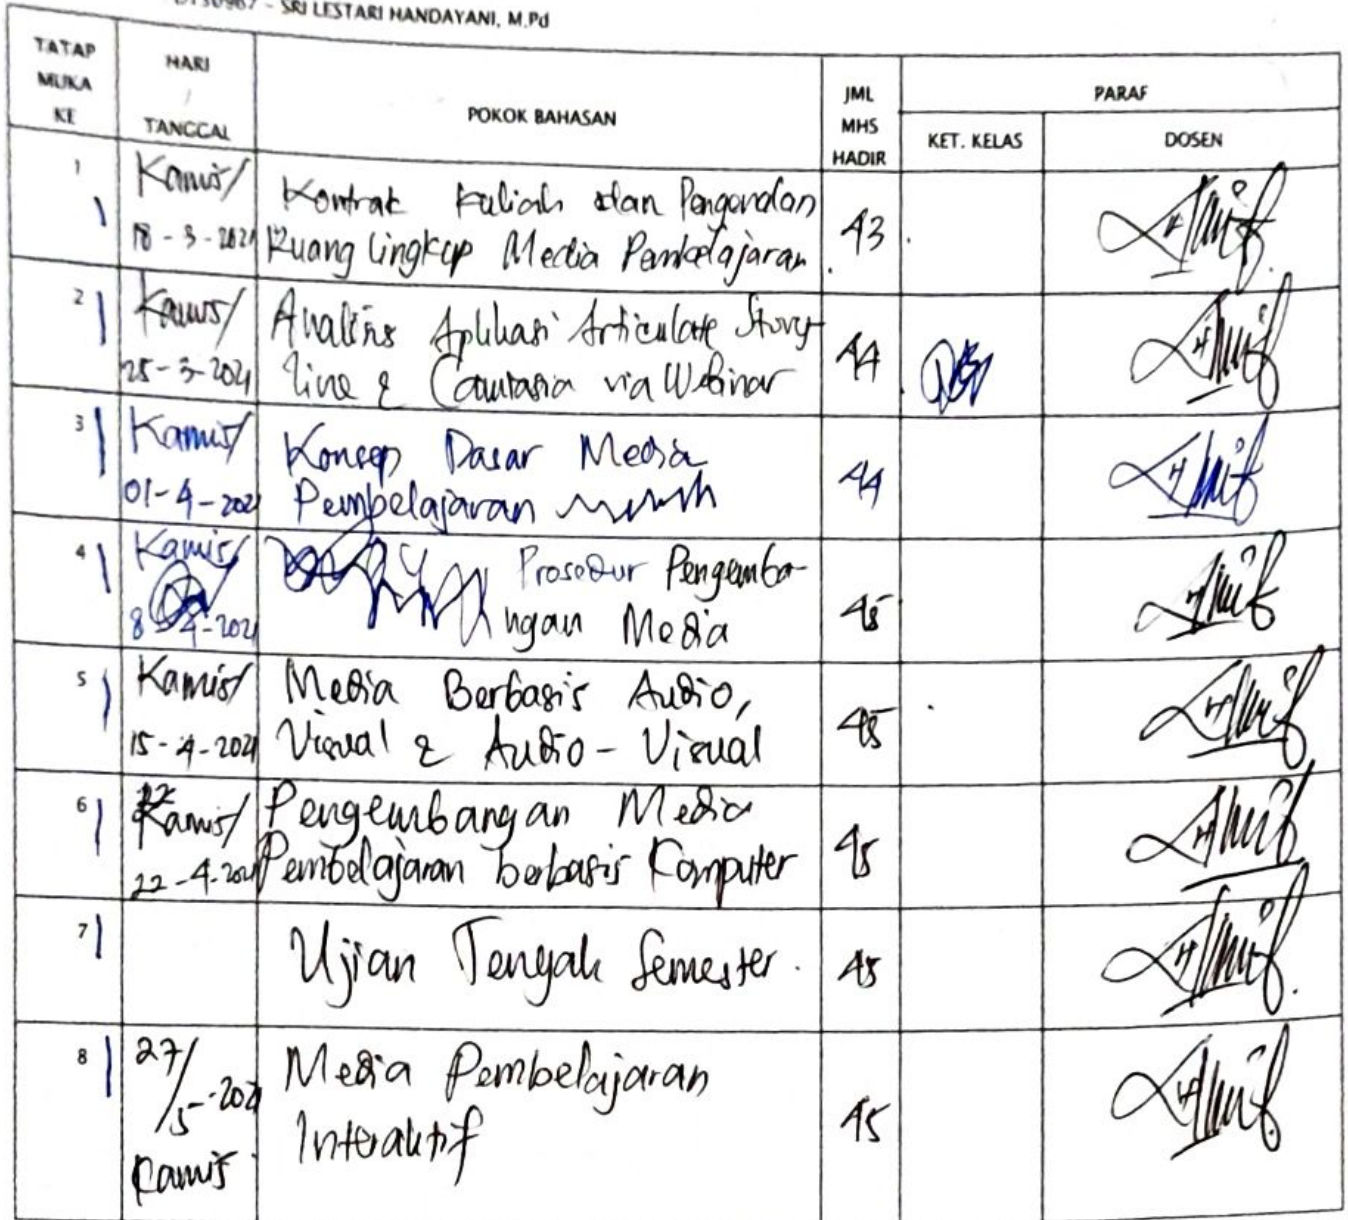 - SRI LESTARI HANDAYANI, M.Pd
TATAP MUKA KE
HARI / TANGGAL
POKOK BAHASAN
JML MHS HADIR
PARAF
KET. KELAS
DOSEN
1
Kamis/
18-3-2021
Kontrak Kuliah dan Pengenalan
Ruang Lingkup Media Pembelajaran
43
2
Kamis/
25-3-2021
Analisis Aplikasi Articulate Story
line & Camtasia via Webinar
44
3
Kamis/
01-4-2021
Konsep Dasar Media
Pembelajaran
44
4
Kamis/
8-4-2021
Prosedur Pengemba-
ngan Media
45
5
Kamis/
15-4-2021
Media Berbasis Audio,
Visual & Audio-Visual
45
6
Kamis/
22-4-2021
Pengembangan Media
Pembelajaran berbasis Komputer
45
7
Ujian Tengah Semester.
45
8
27/5-2021
Kamis
Media Pembelajaran
Interaktif
45